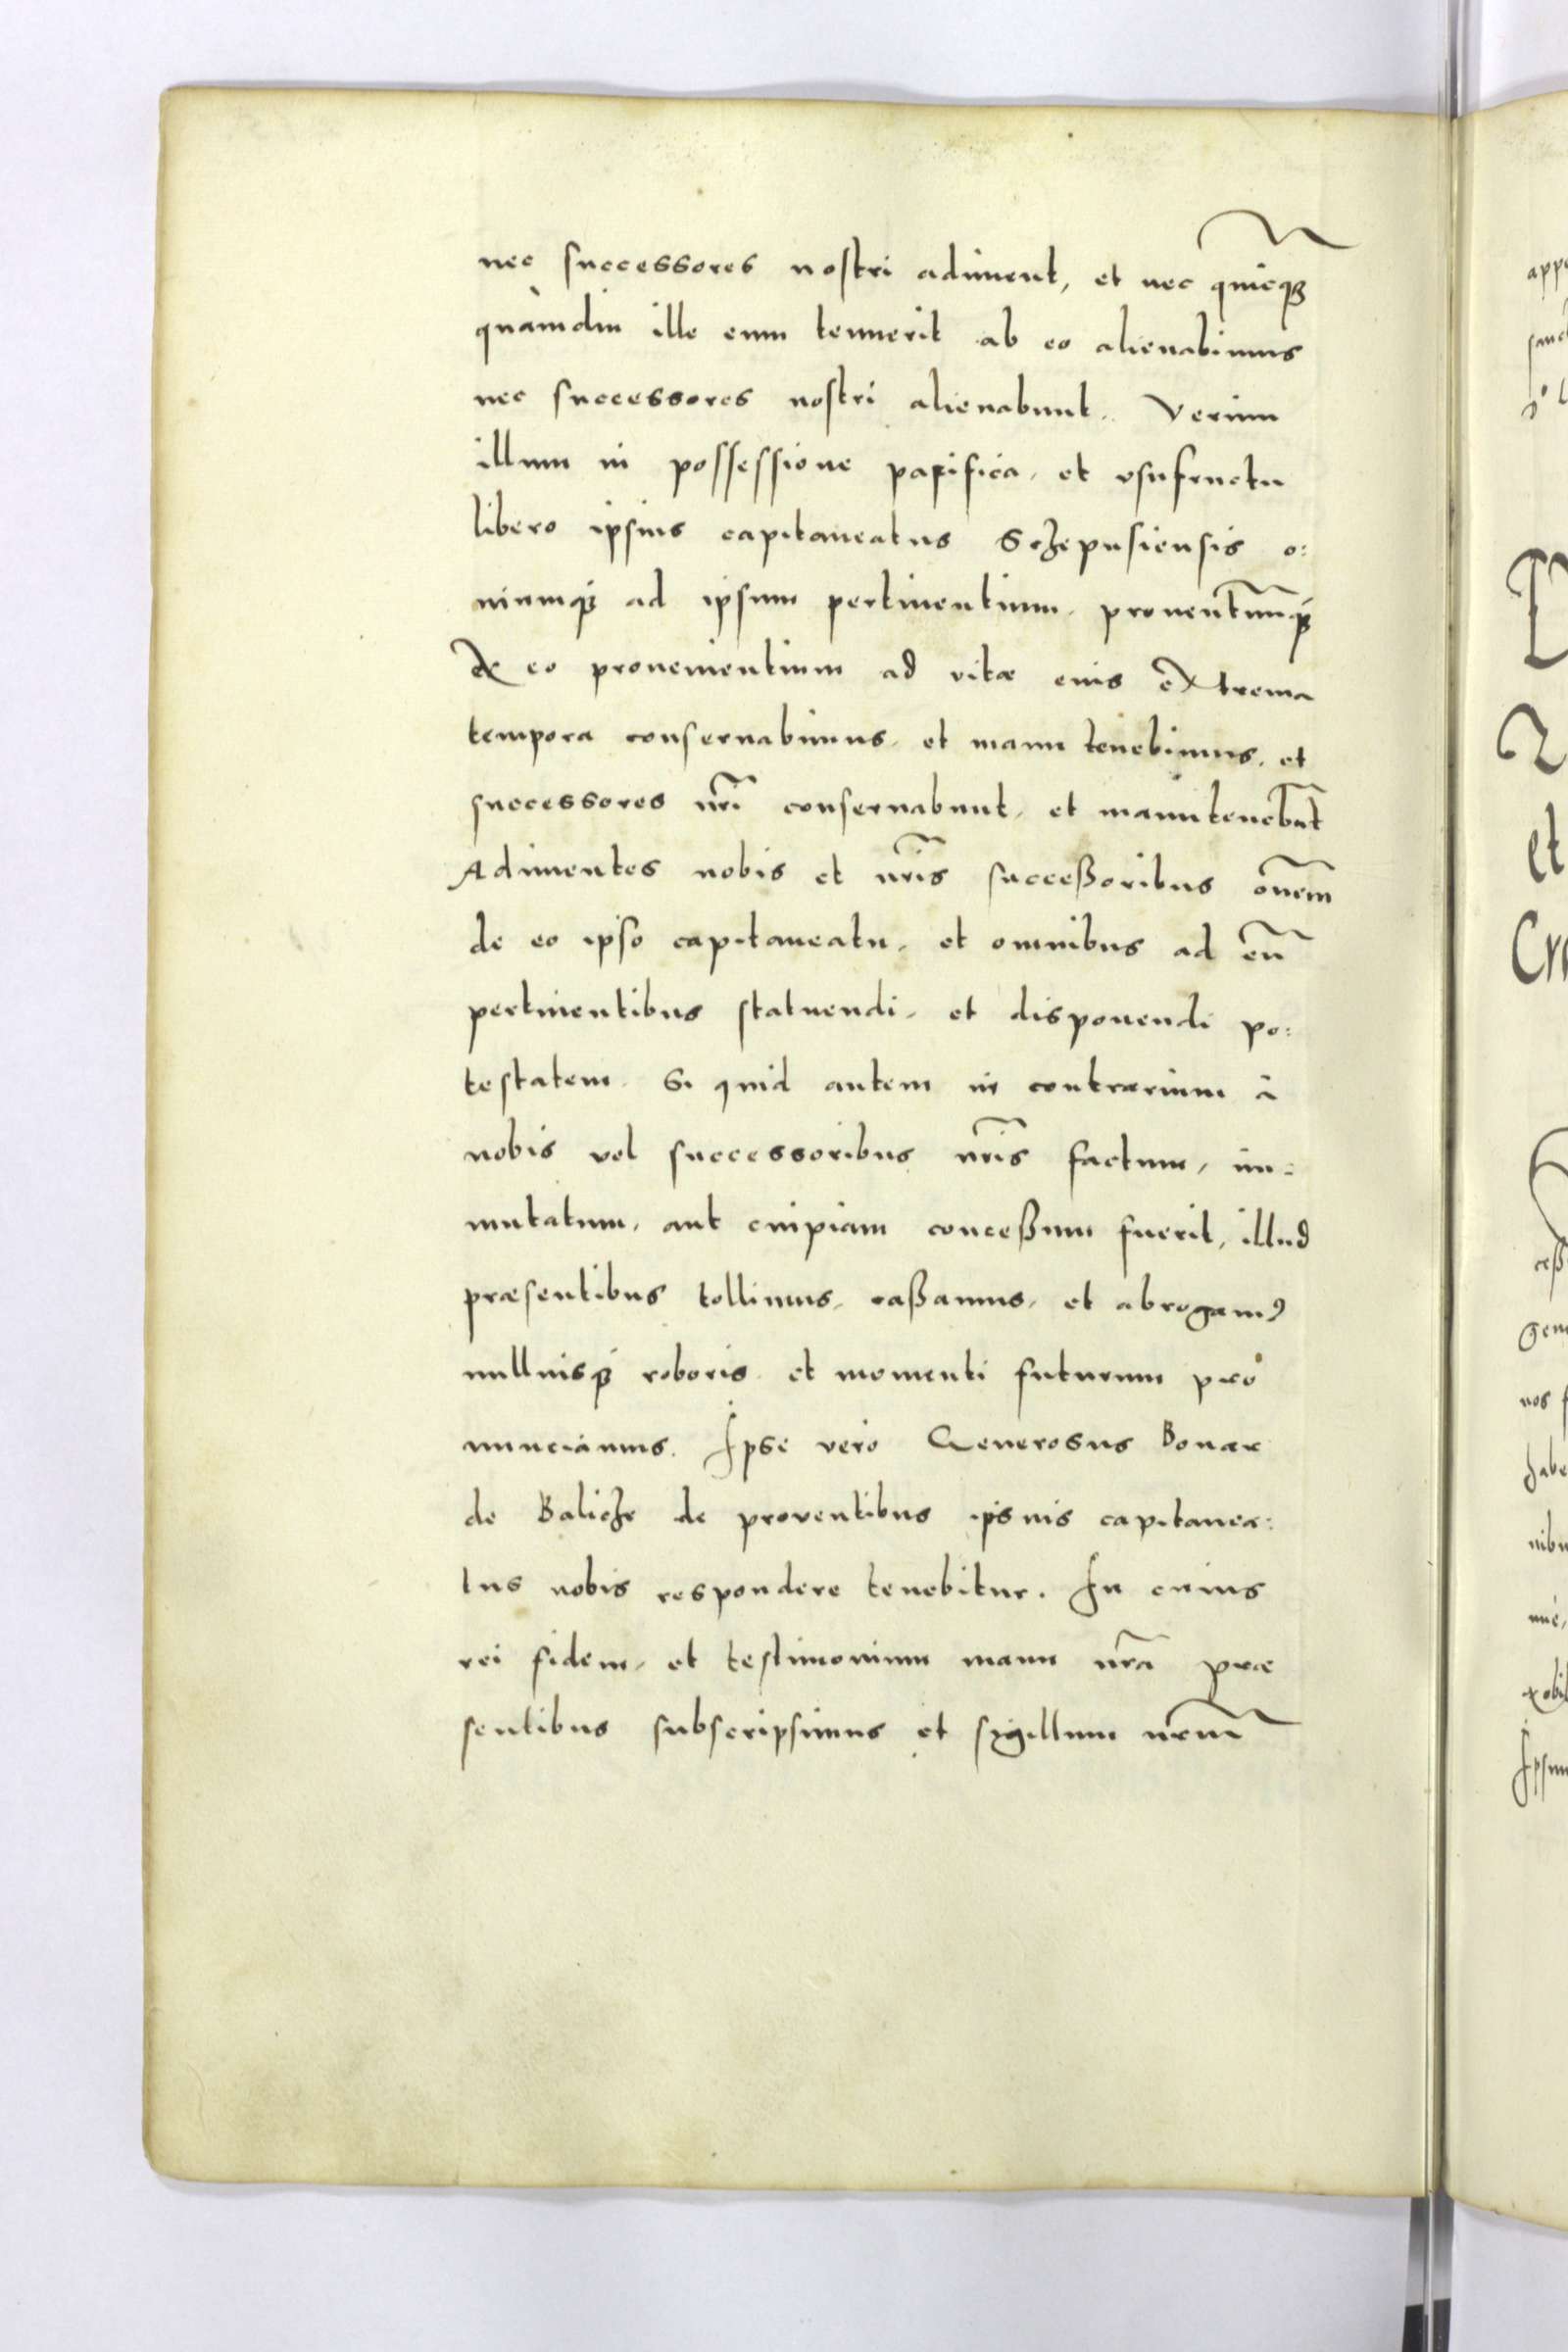 nec successores nostri adiment, et nec quicq̃ꝫ
quàmdiu ille eum tenuerit ab eo alienabimus
nec successores nostri alienabunt. Verum
illum in possessione pacifica, et vsufructu
libero ipsius capitaneatus Schepusiensis o:
niumqꝫ ad ipsum pertinentium, prouentuũqꝫ
ex eo prouenientium ad vitæ eius extrema
tempora conseruabimus, et manu tenebimus, et
successores nr̃i conseruabunt, et manutenebũt
Adimentes nobis et nr̃is succeßoribus õnem
de eo ipso capitaneatu, et omnibus ad eũ
pertinentibus statuendi, et disponendi po:
testatem. Si quid autem in contrarium à
nobis vel successoribus nr̃is factum, im:
mutatum, aut cuipiam conceßum fuerit, illud
præsentibus tollimus, caßamus, et abrogamꝰ
nulliusqꝫ roboris et momenti futurum pro
nunciamus. Ipse vero Generosus Bonar
de Balicze de proventibus ipsius capitanea:
tus nobis respondere tenebitur. In cuius
rei fidem, et testimonium manu nr̃a præ
sentibus subscripsimus et sigillum nr̃um